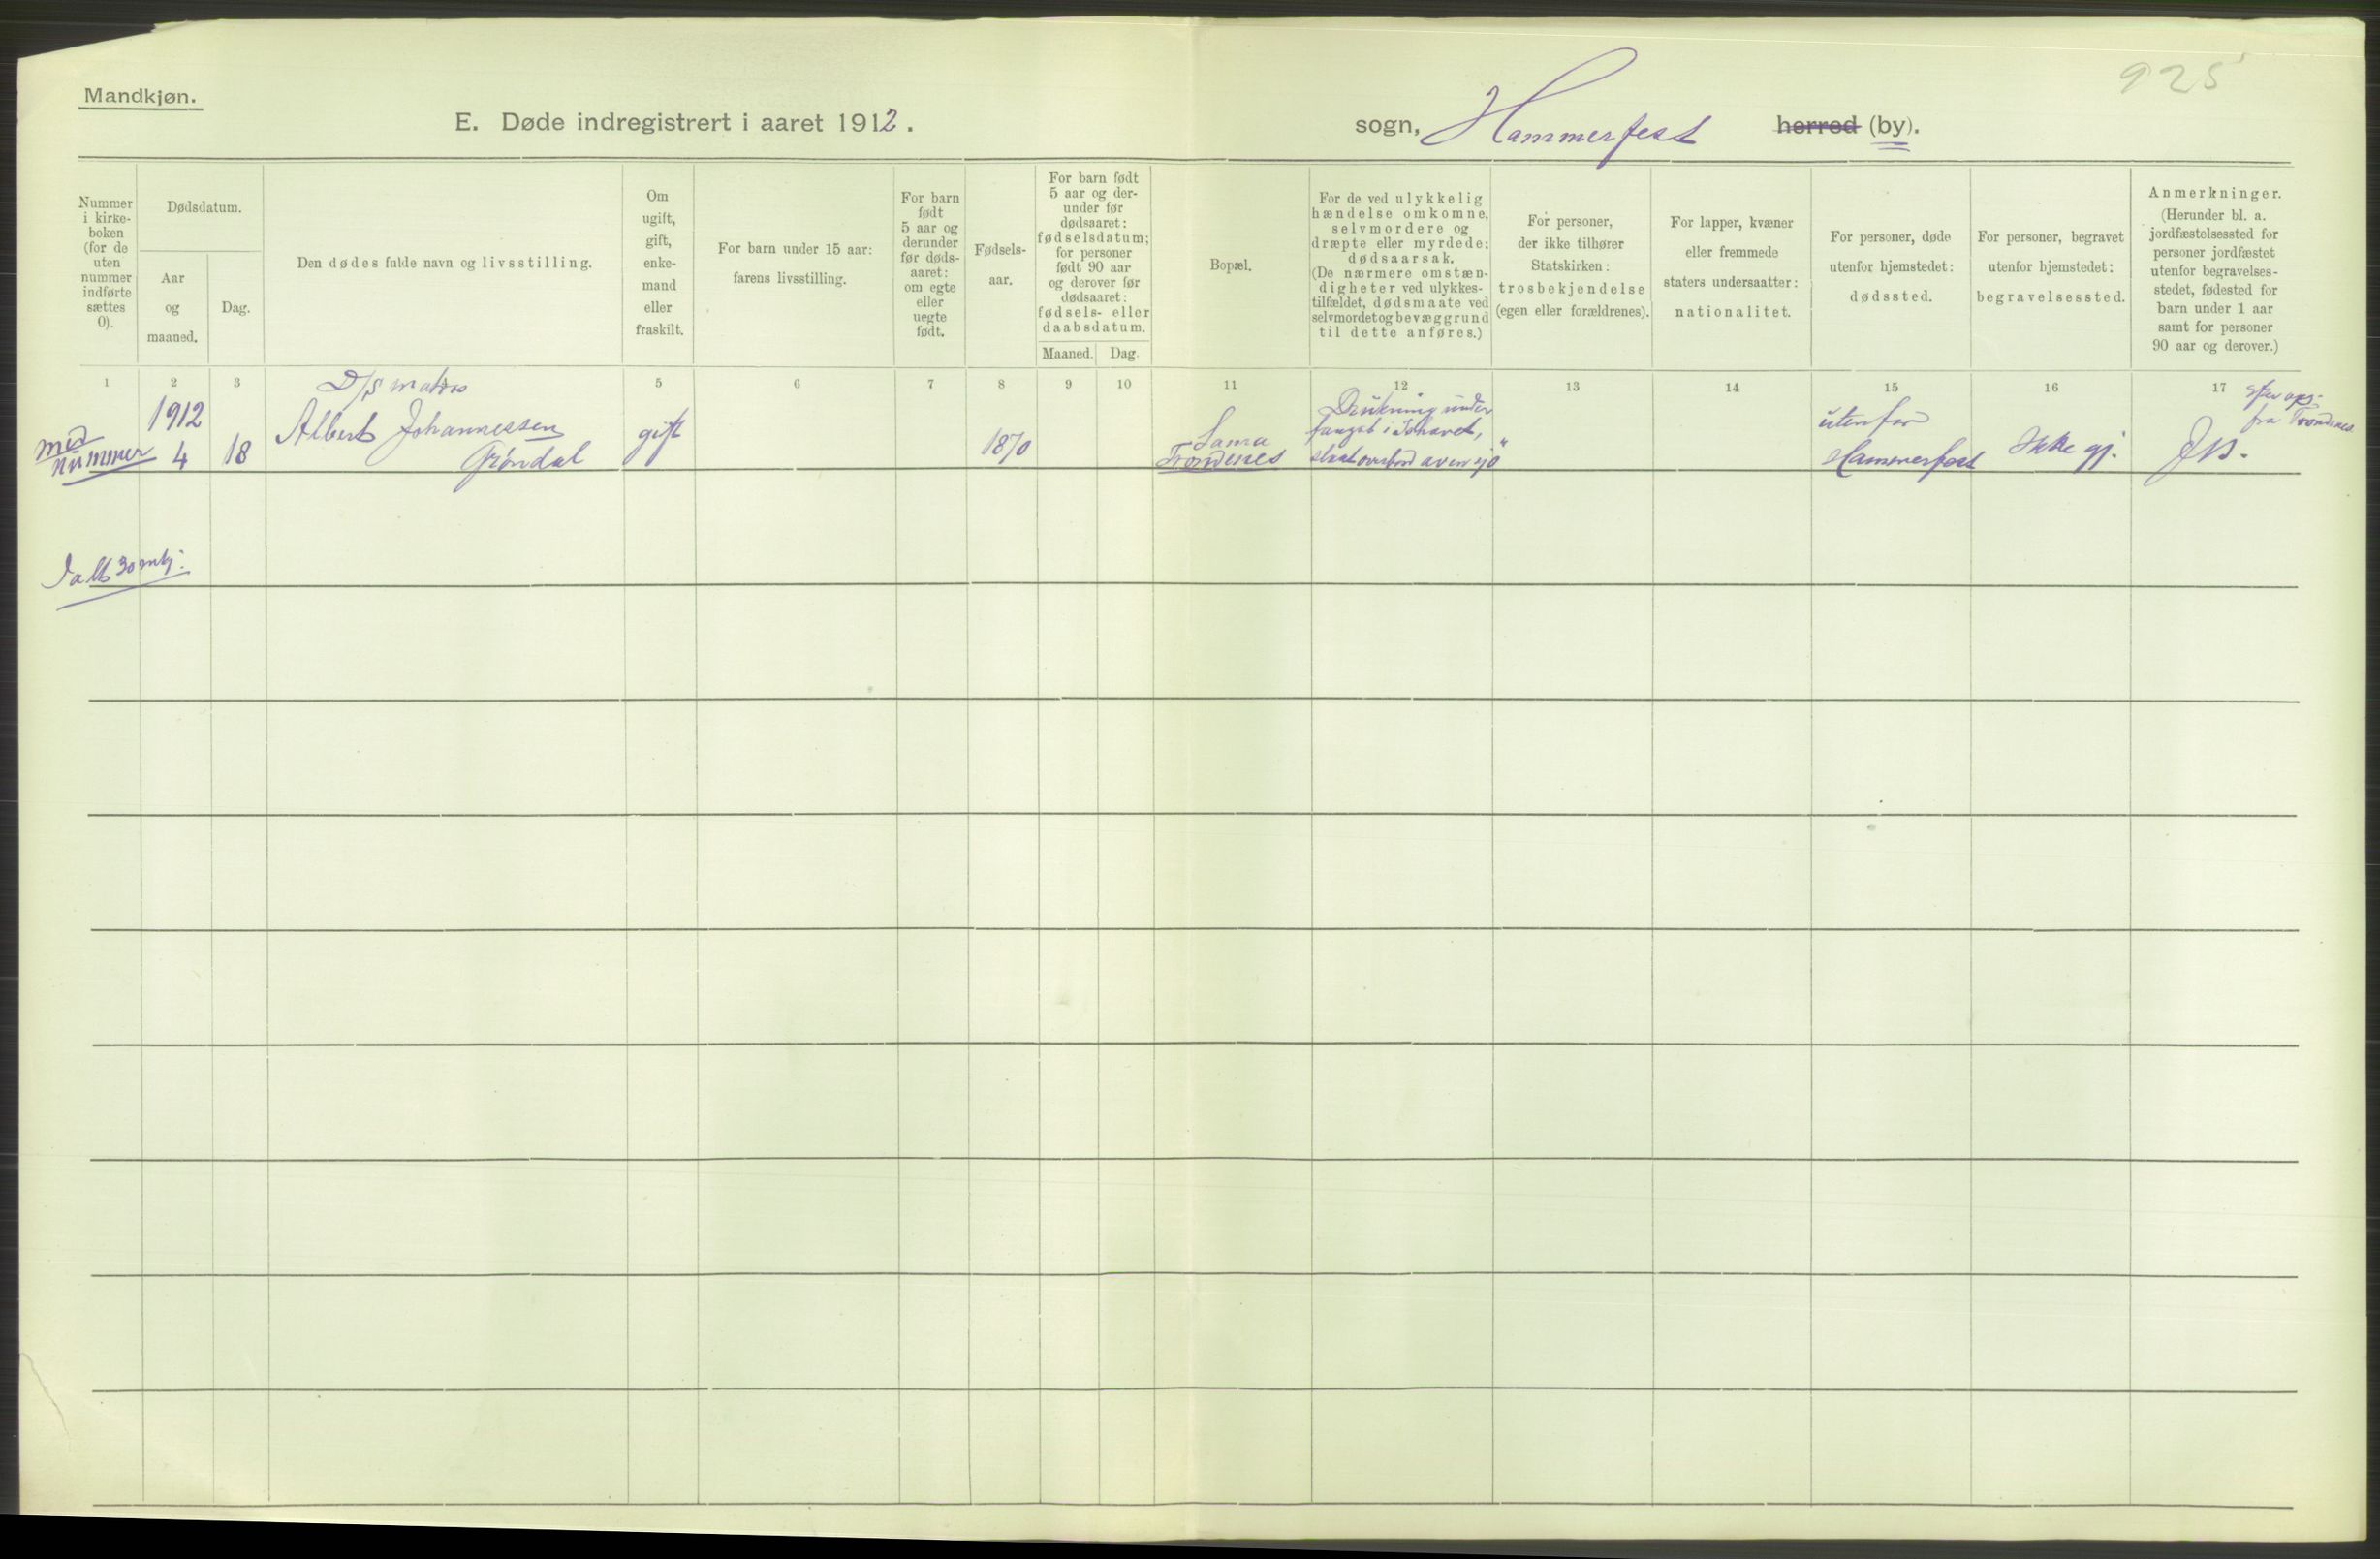 Mandkjøn.
925
E. Døde indregistrert i aaret 1912.
sogn, Hammerfest herred (by).
Nummer
i kirke-
boken
(for de
uten
nummer
indførte
sættes
0).
Dødsdatum.
Aar
og
maaned.
Dag.
Den dødes fulde navn og livsstilling.
Om
ugift,
gift,
enke-
mand
eller
fraskilt.
For barn under 15 aar:
farens livsstilling.
For barn
født
5 aar og
derunder
før døds-
aaret:
om egte
eller
uegte
født.
Fødsels-
aar.
For barn født
5 aar og der-
under før
dødsaaret:
fødselsdatum;
for personer
født 90 aar
og derover før
dødsaaret:
fødsels- eller
daabsdatum.
Maaned. Dag.
Bopæl.
For de ved ulykkelig
hændelse omkomne,
selvmordere og
dræpte eller myrdede:
dødsaarsak.
(De nærmere omstæn-
digheter ved ulykkes-
tilfældet, dødsmaate ved
selvmordet og bevæggrund
til dette anføres.)
For personer,
der ikke tilhører
Statskirken:
trosbekjendelse
(egen eller forældrenes).
For lapper, kvæner
eller fremmede
staters undersaatter:
nationalitet.
For personer, døde
utenfor hjemstedet:
dødssted.
For personer, begravet
utenfor hjemstedet:
begravelsessted.
Anmerkninger.
(Herunder bl. a.
jordfæstelsessted for
personer jordfæstet
utenfor begravelses-
stedet, fødested for
barn under 1 aar
samt for personer
90 aar og derover.)
1 2 3 5 6 7 8 9 10 11 12 13 14 15 16 17
med
nummer
1912
4
18
D/S matros
Albert Johannessen
Grøndal
gift
1870
Sama
Trondenes
Drukning under
fangst i Ishavet,
slaat overbord av en sjø
"
utenfor
Hammerfest
Ikke gj.
efter ops.
fra Trondenes
Ialt 30 mkj.